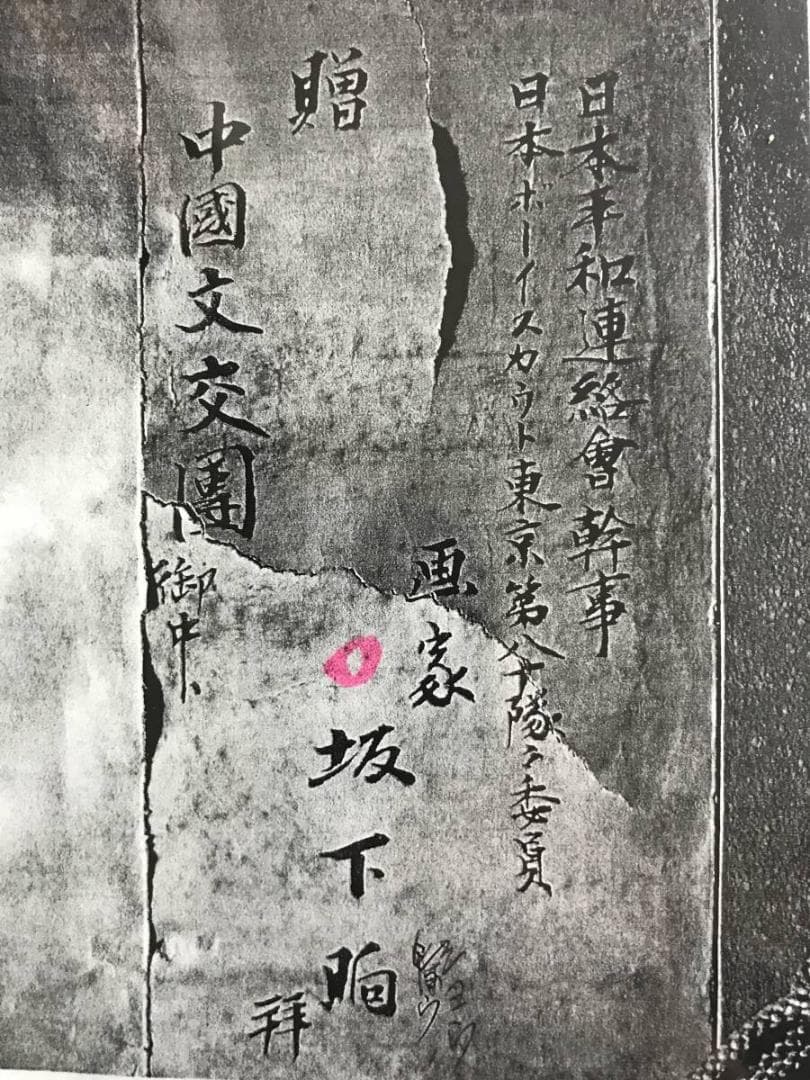 日本平和連絡會幹事
日本ボーイスカウト東京第八十隊々委員
画家
坂下晌
拝
贈
中國文交團
御中、